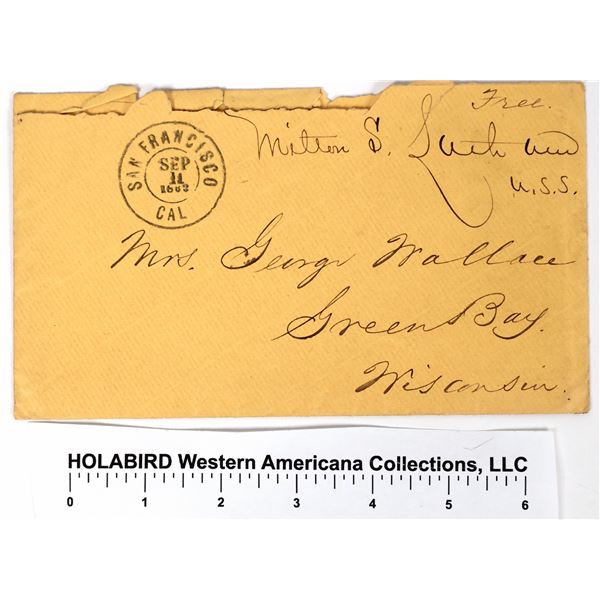 Free.
SAN FRANCISCO
SEP
11
CAL
Milton S. Latham
U.S.S.
Mrs. George Wallace
Green Bay.
Wisconsin.
HOLABIRD Western Americana Collections, LLC
0 1 2 3 4 5 6